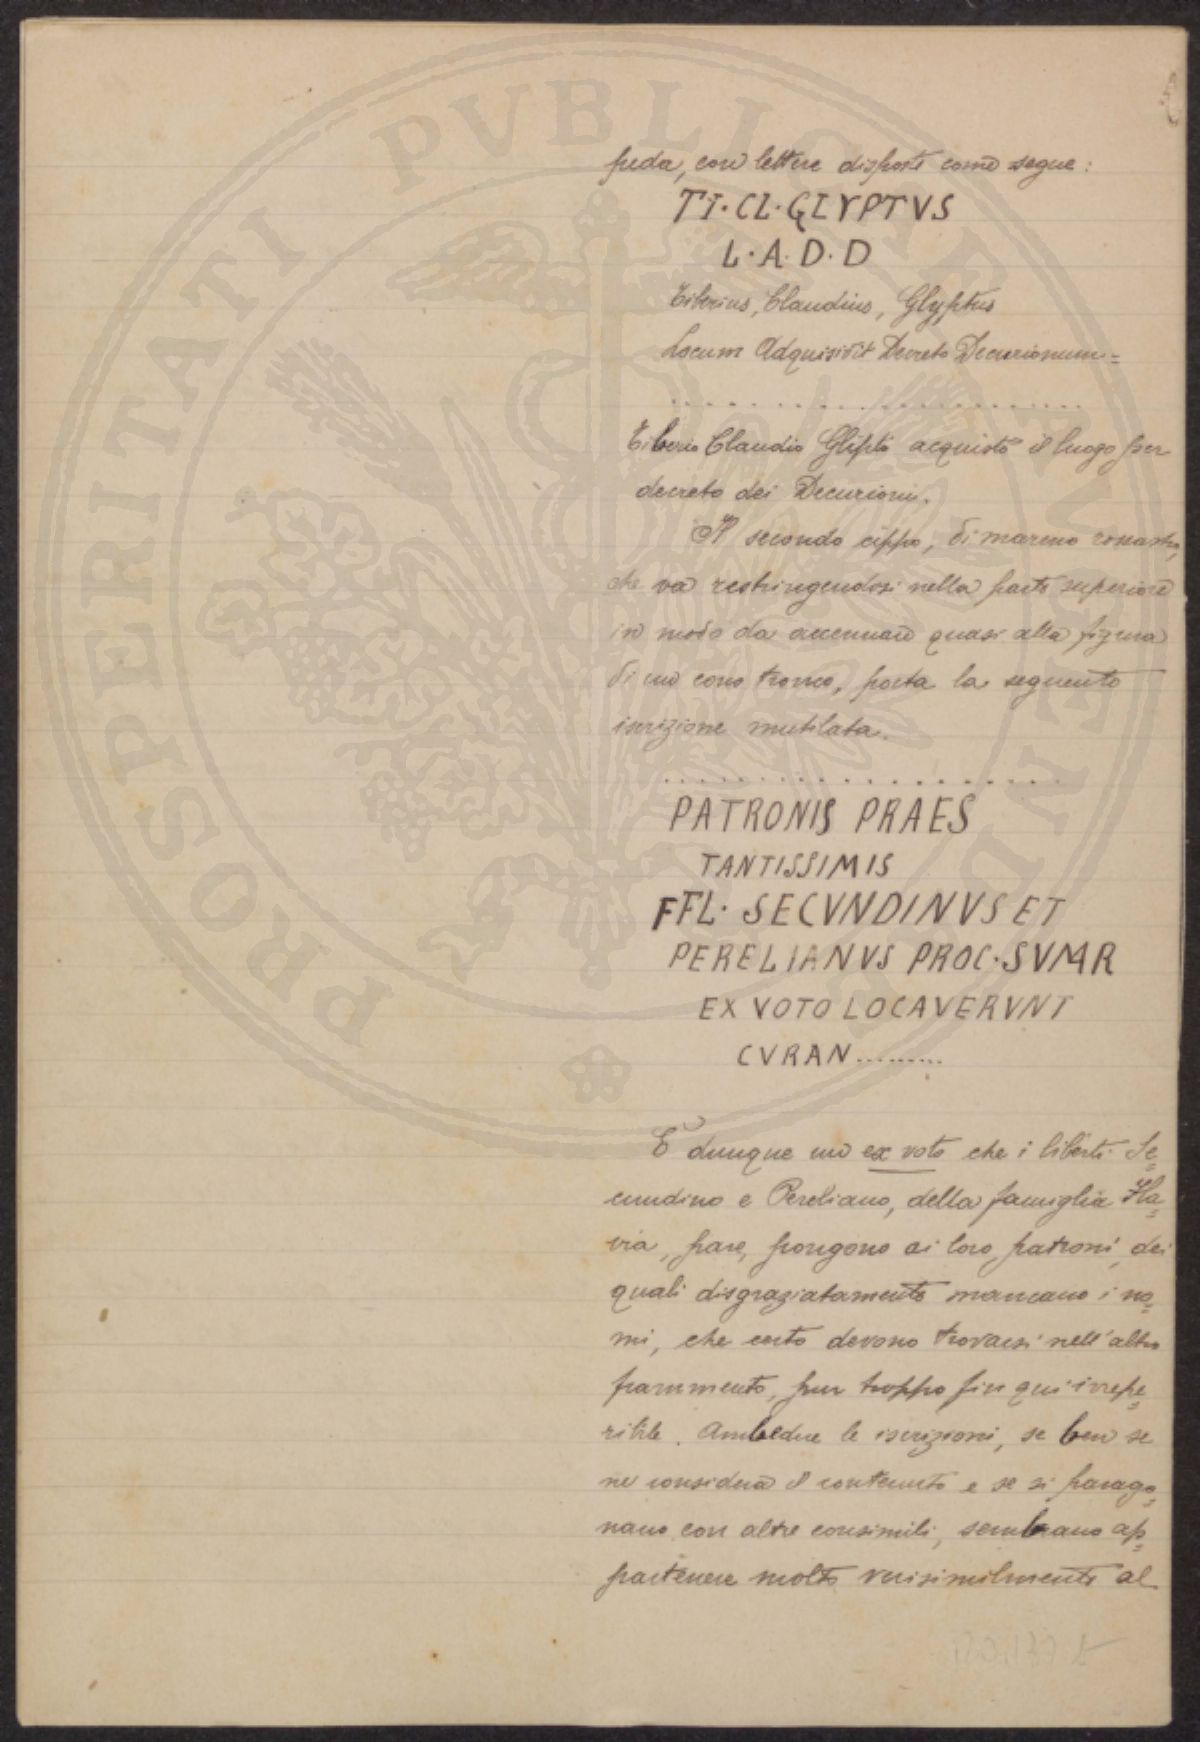 peda, con lettere disposte come segue:
TI·CL·GLYPTVS
L·A·D·D
Tiberius, Claudius, Glyptus
Locum Adquisivit Decreto Decurionum=
. . . . . . . . . . . . . . . . . . . . . .
Tiberio Claudio Glipto acquistò il luogo per
decreto dei Decurioni.
Il secondo cippo, di marmo rossastro,
che va restringendosi nella parte superiore
in modo da accennare quasi alla figura
di un cono tronco, porta la seguente
iscrizione mutilata.
. . . . . . . . . . . . . . . . . . . . .
PATRONIS PRAES
TANTISSIMIS
FFL· SECVNDINVS ET
PERELIANVS PROC·SVMR
EX VOTO LOCAVERVNT
CVRAN.........
È dunque un ex voto che i liberti Se=
cundino e Pereliano, della famiglia Fla=
via, pare, pongono ai loro patroni, dei
quali disgraziatamente mancano i no=
mi, che certo devono trovarsi nell'altro
frammento, pur troppo fin qui irrepe=
ribile. Ambedue le iscrizioni, se ben se
ne considera il contenuto e se si parago=
nano con altre consimili, sembrano ap=
partenere molto verisimilmente al
PROSPERITATI PVBLICAE